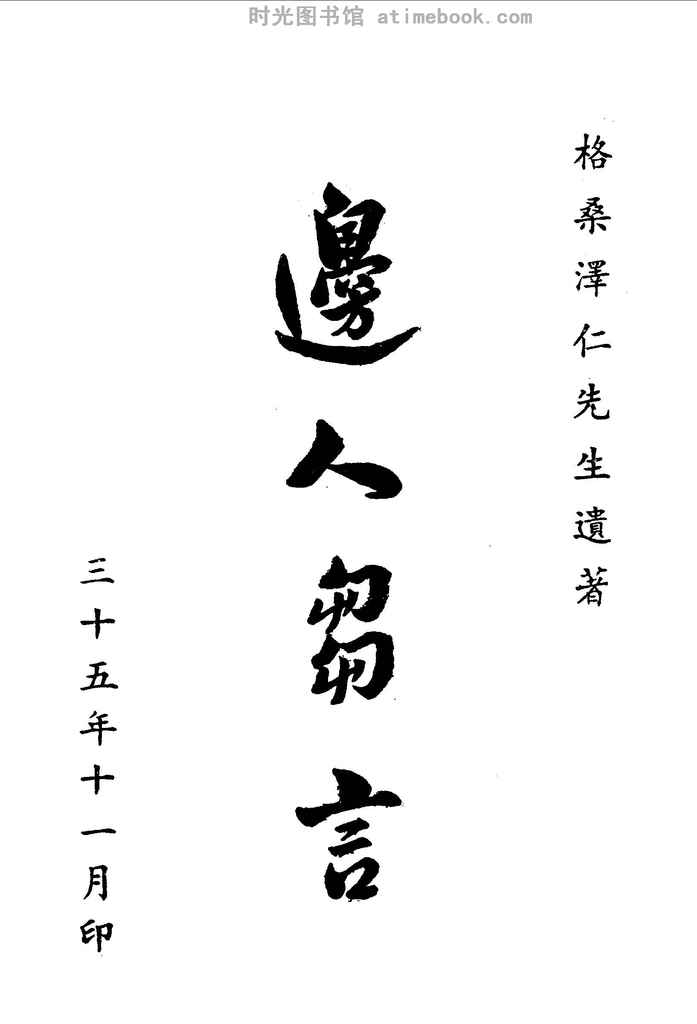 时光图书馆 atimebook.com
格桑澤仁先生遺著
邊人芻言
三十五年十一月印